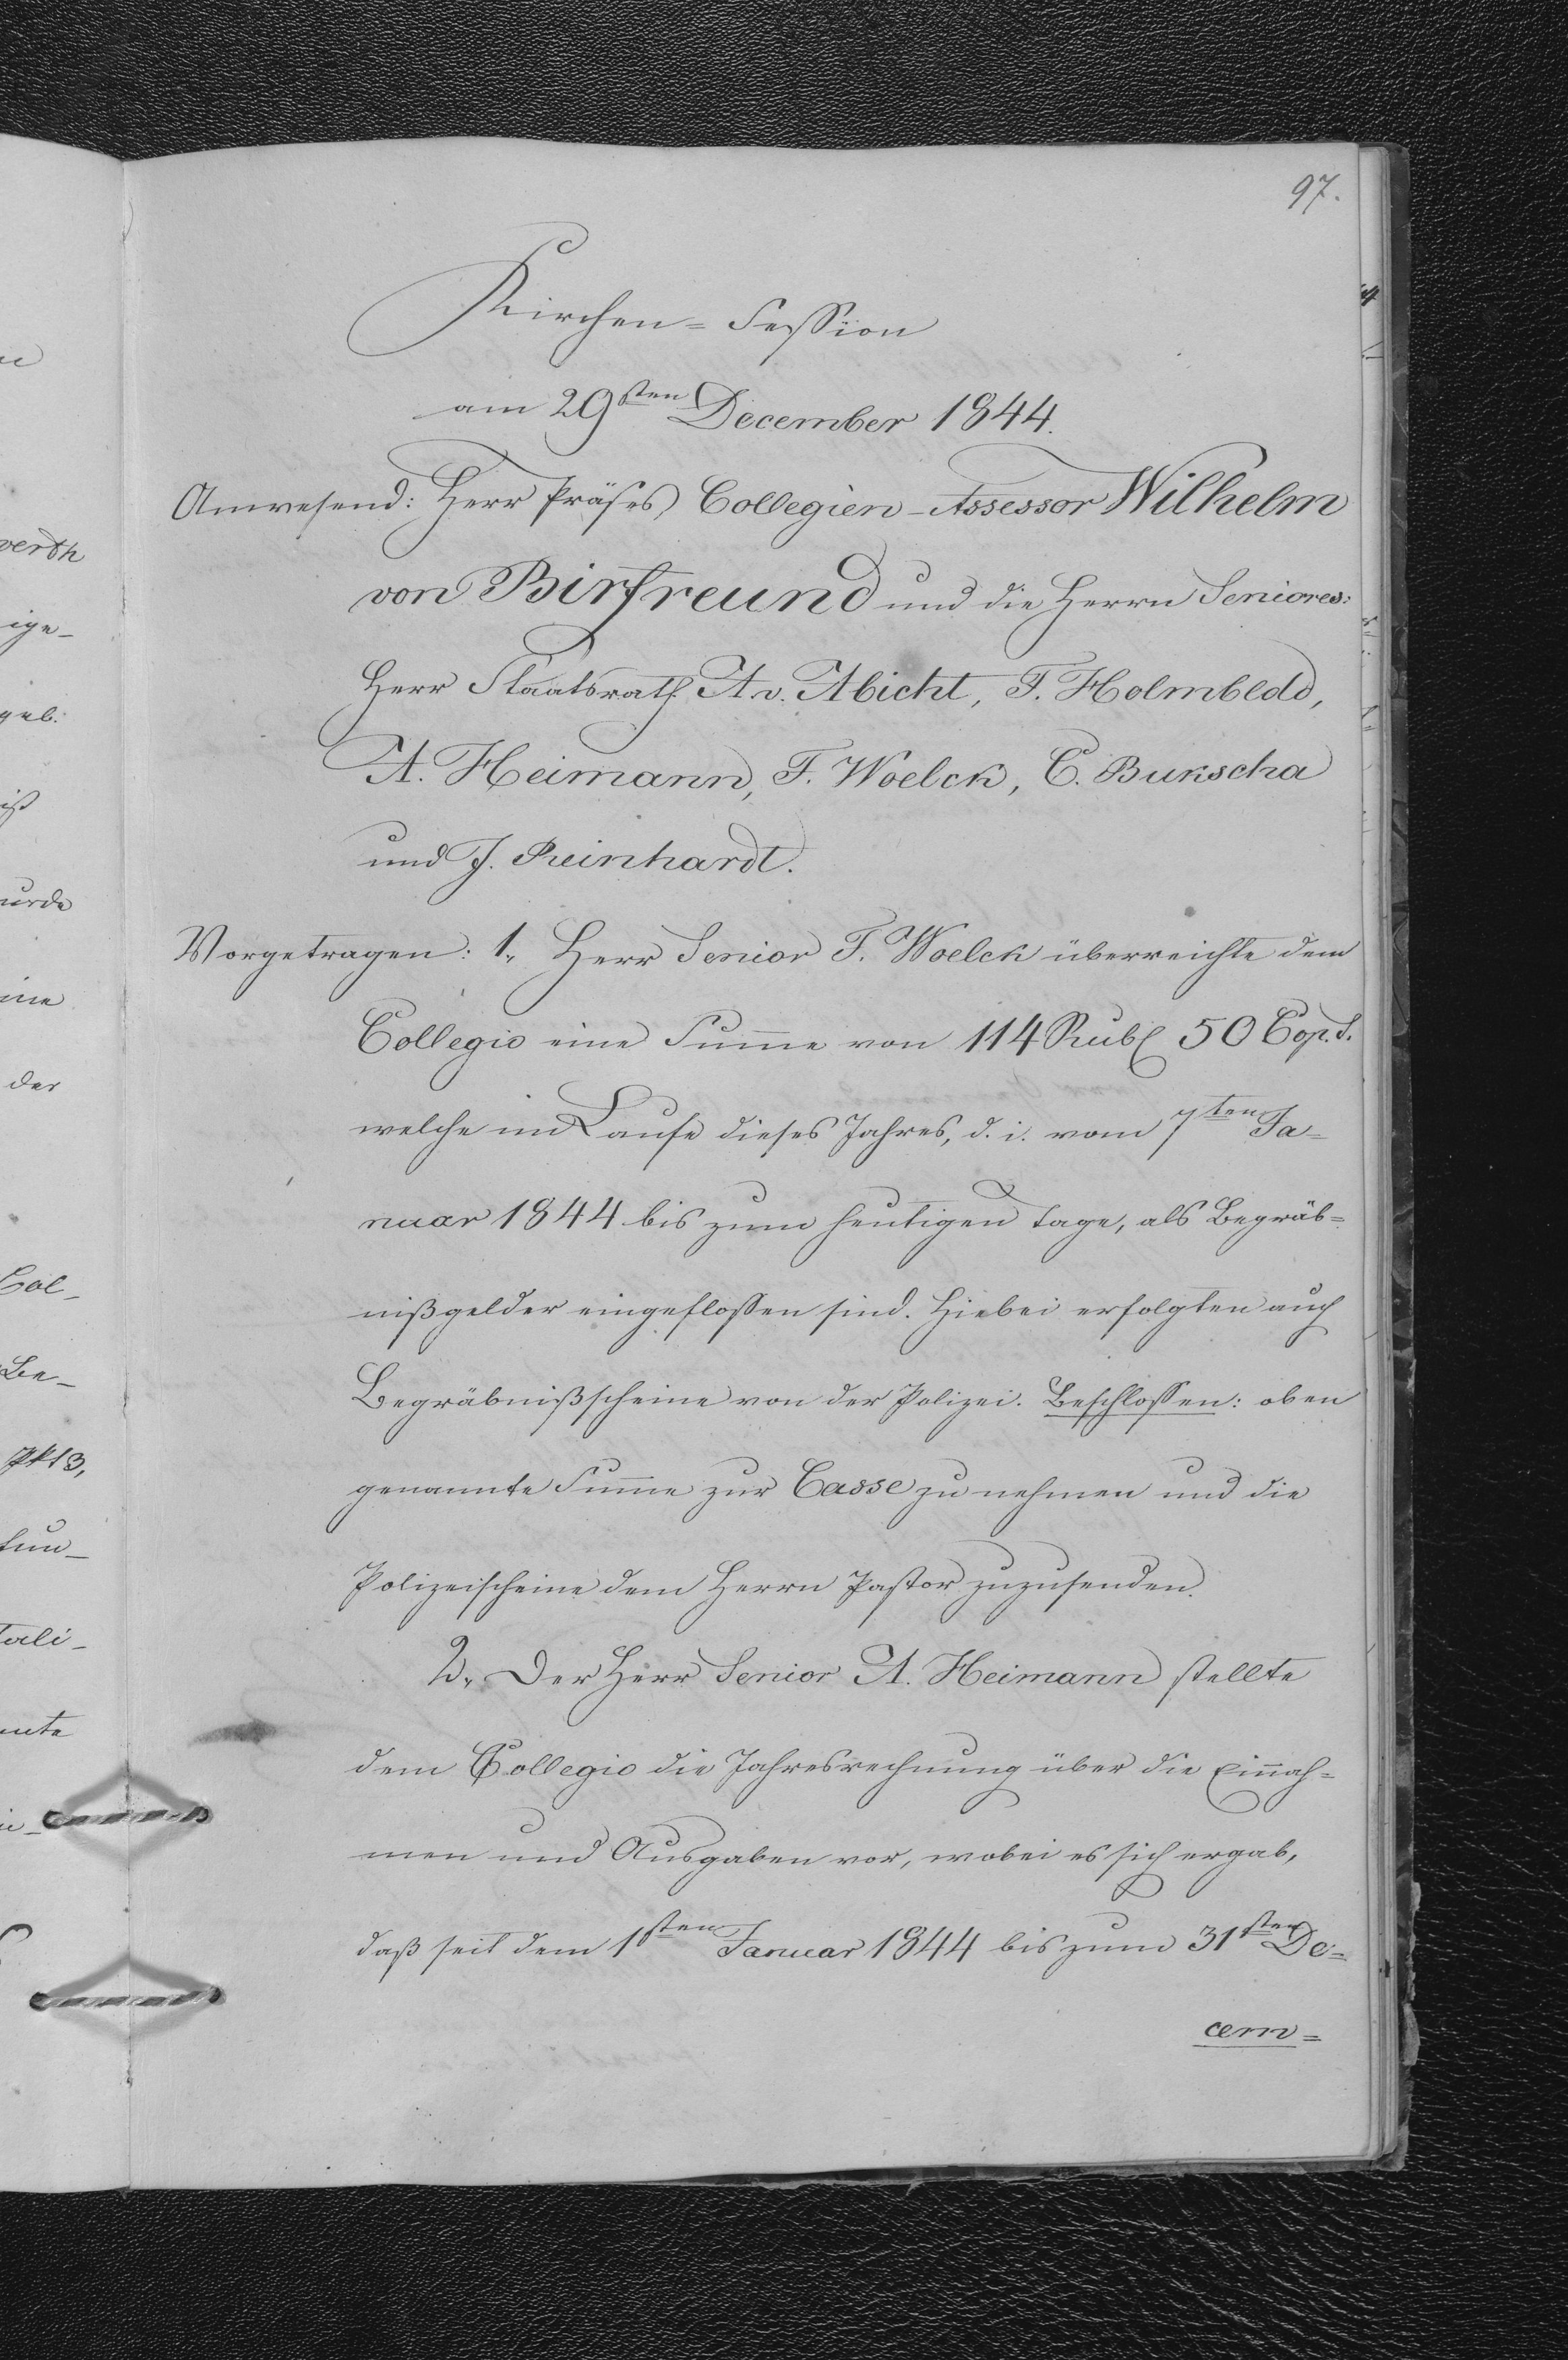 97.
Kirchen=Session
am 29sten December 1844.
Anwesend: Herr Präses Collegien-Assessor Wilhelm
von Birfreund und die Herrn Seniores:
Herr Staatsrath A v. Abicht, F. Holmbldd,
A. Heimann, F. Woelck, C. Bukscha
und J. Reinhardt.
Vorgetragen: 1., Herr Senior F. Woelck überreichte dem
Collegio eine Sum̅e von 114 Rubl 50 Cop. S.
welche im Laufe dieses Jahres, d. i. vom 7ten Ja=
nuar 1844 bis zum heutigen Tage, als Begräb=
nißgelder eingeflossen sind. Hiebei erfolgten auch
Begräbnißscheine von der Polizei. Beschlossen: oben
genannte Sum̅e zur Casse zu nehmen und die
Polizeischeine dem Herrn Pastor zuzusenden.
2., Der Herr Senior A. Heimann stellte
dem Collegio die Jahresrechnung über die Ein̅ah=
men und Ausgaben vor, wobei es sich ergab,
daß seit dem 1sten Januar 1844 bis zum 31sten De=
cem=